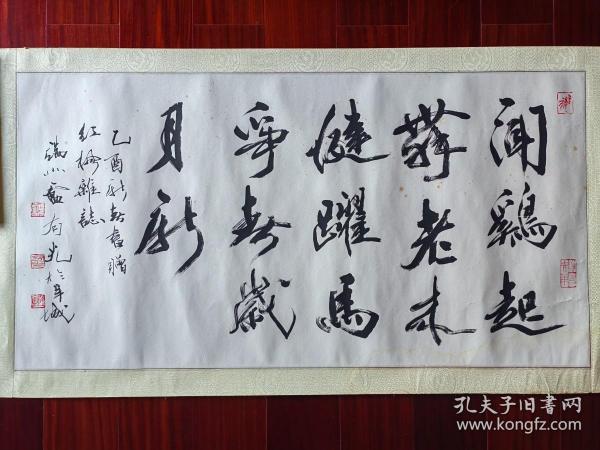 聞鷄起
舞老来
健躍馬
爭春歲
月新
乙酉新春書贈
紅梅雜誌
向光於阜城
孔夫子旧书网
www.kongfz.com